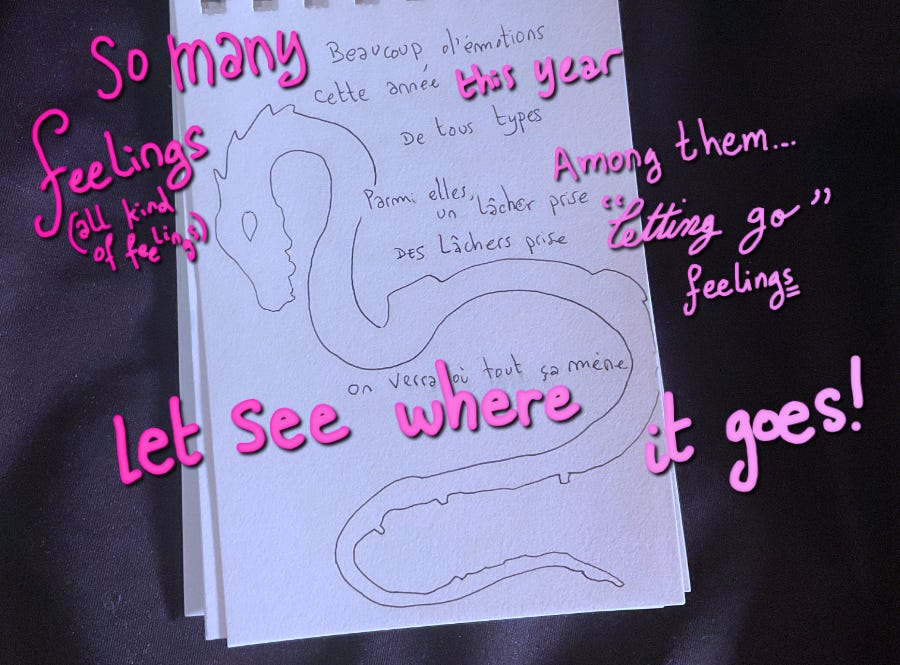 So many
feelings
(all kind
of feelings)
Beaucoup d'émotions
cette année
this year
De tous types
Among them...
Parmi elles,
un lâcher prise
DES Lâchers prise
"Letting go"
feelings
on verra où tout ça mène
let see where it goes!